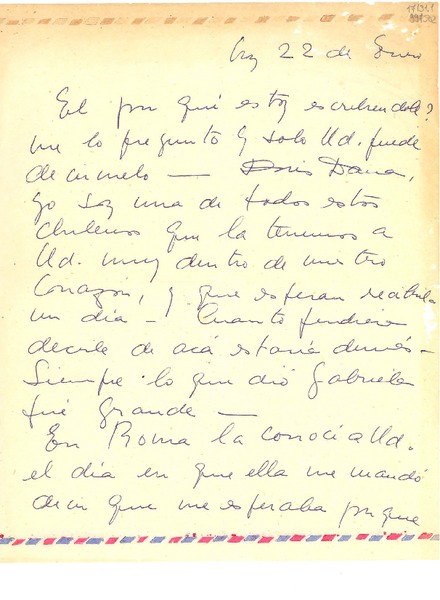 22 de Enero
El por qué estoy escribiendole?
me lo pregunto y solo Ud. puede
decirmelo — Doris Dana,
yo soy una de todos estos
chilenos que la tenemos a
Ud. muy dentro de nuestro
Corazón, y que esperan recibirla
un día — Cuanto pudiera
decirle de acá estaría demás —
Siempre lo que dió Gabriela
fué grande —
En Roma la conocí a Ud.
el día en que ella me mandó
decir que me esperaba porque